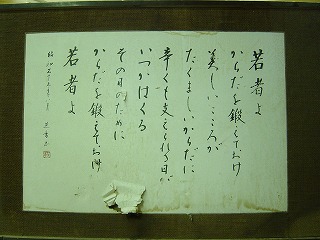 若者よ
からだを鍛えておけ
美しいこころが
たくましいからだに
辛くも支えられる日が
いつかはくる
その日のために
からだを鍛えておけ
若者よ